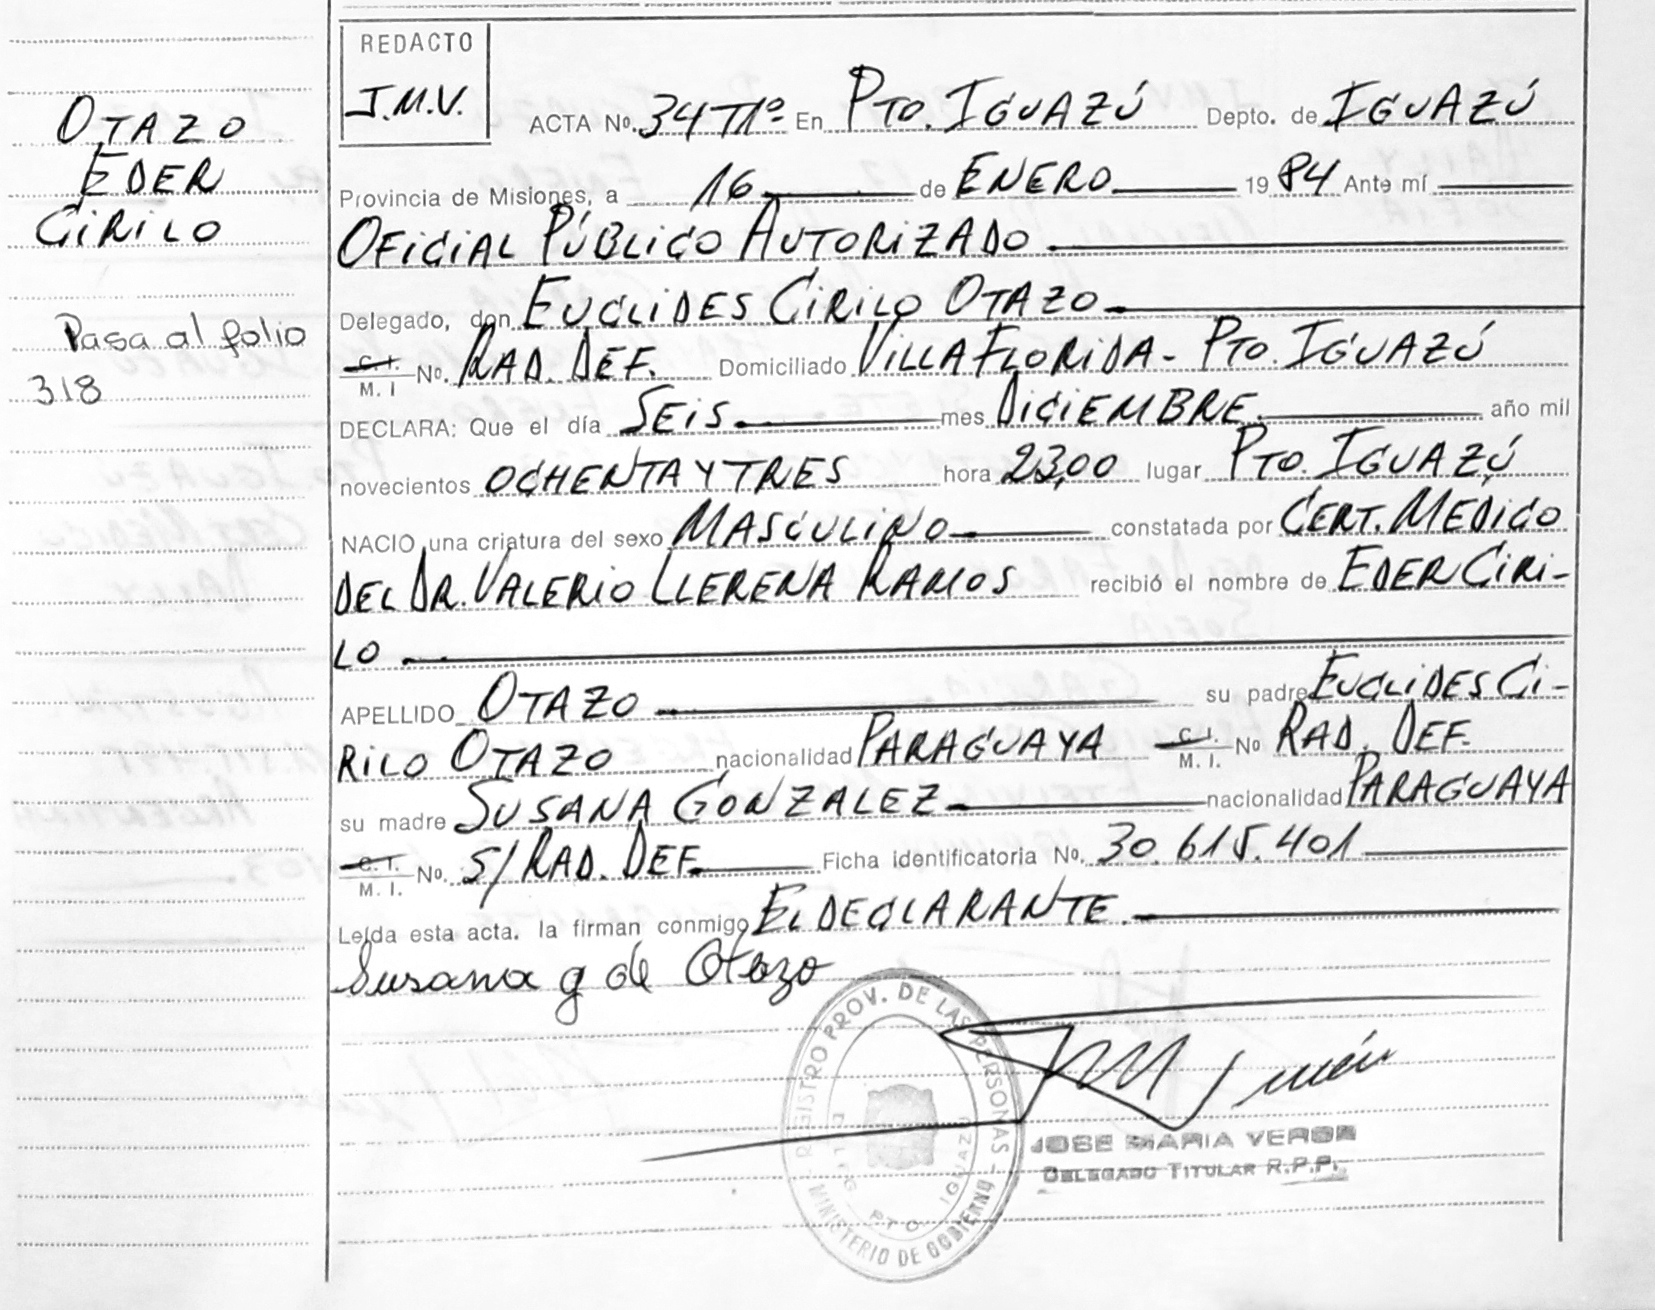 OTAZO
EDER
CIRILO
Pasa al folio
318
REDACTO
J.M.V.
ACTA No. 34 Tº1º En PTO. IGUAZÚ Depto. de IGUAZÚ
Provincia de Misiones, a 16 de ENERO 1984 Ante mí
OFICIAL PÚBLICO AUTORIZADO
Delegado, don EUCLIDES CIRILO OTAZO
C.I. M.I No. RAD. DEF. Domiciliado VILLA FLORIDA - PTO. IGUAZÚ
DECLARA: Que el día SEIS mes DICIEMBRE año mil
novecientos OCHENTA Y TRES hora 23,00 lugar PTO. IGUAZÚ
NACIO una criatura del sexo MASCULINO constatada por CERT. MEDICO
DEL DR. VALERIO LLERENA RAMOS recibió el nombre de EDER CIRI-
LO
APELLIDO OTAZO su padre EUCLIDES CI-
RILO OTAZO nacionalidad PARAGUAYA C.I. M.I. No RAD. DEF.
su madre SUSANA GONZALEZ nacionalidad PARAGUAYA
C.I. M.I. No. S/ RAD. DEF. Ficha identificatoria No. 30.615.401
Leída esta acta. la firman conmigo EL DECLARANTE.
Susana g de Otazo
REGISTRO PROV. DE LAS PERSONAS
MINISTERIO DE GOBIERNO
PTO. IGUAZU
JOSE MARIA VERON
DELEGADO TITULAR R.P.P.